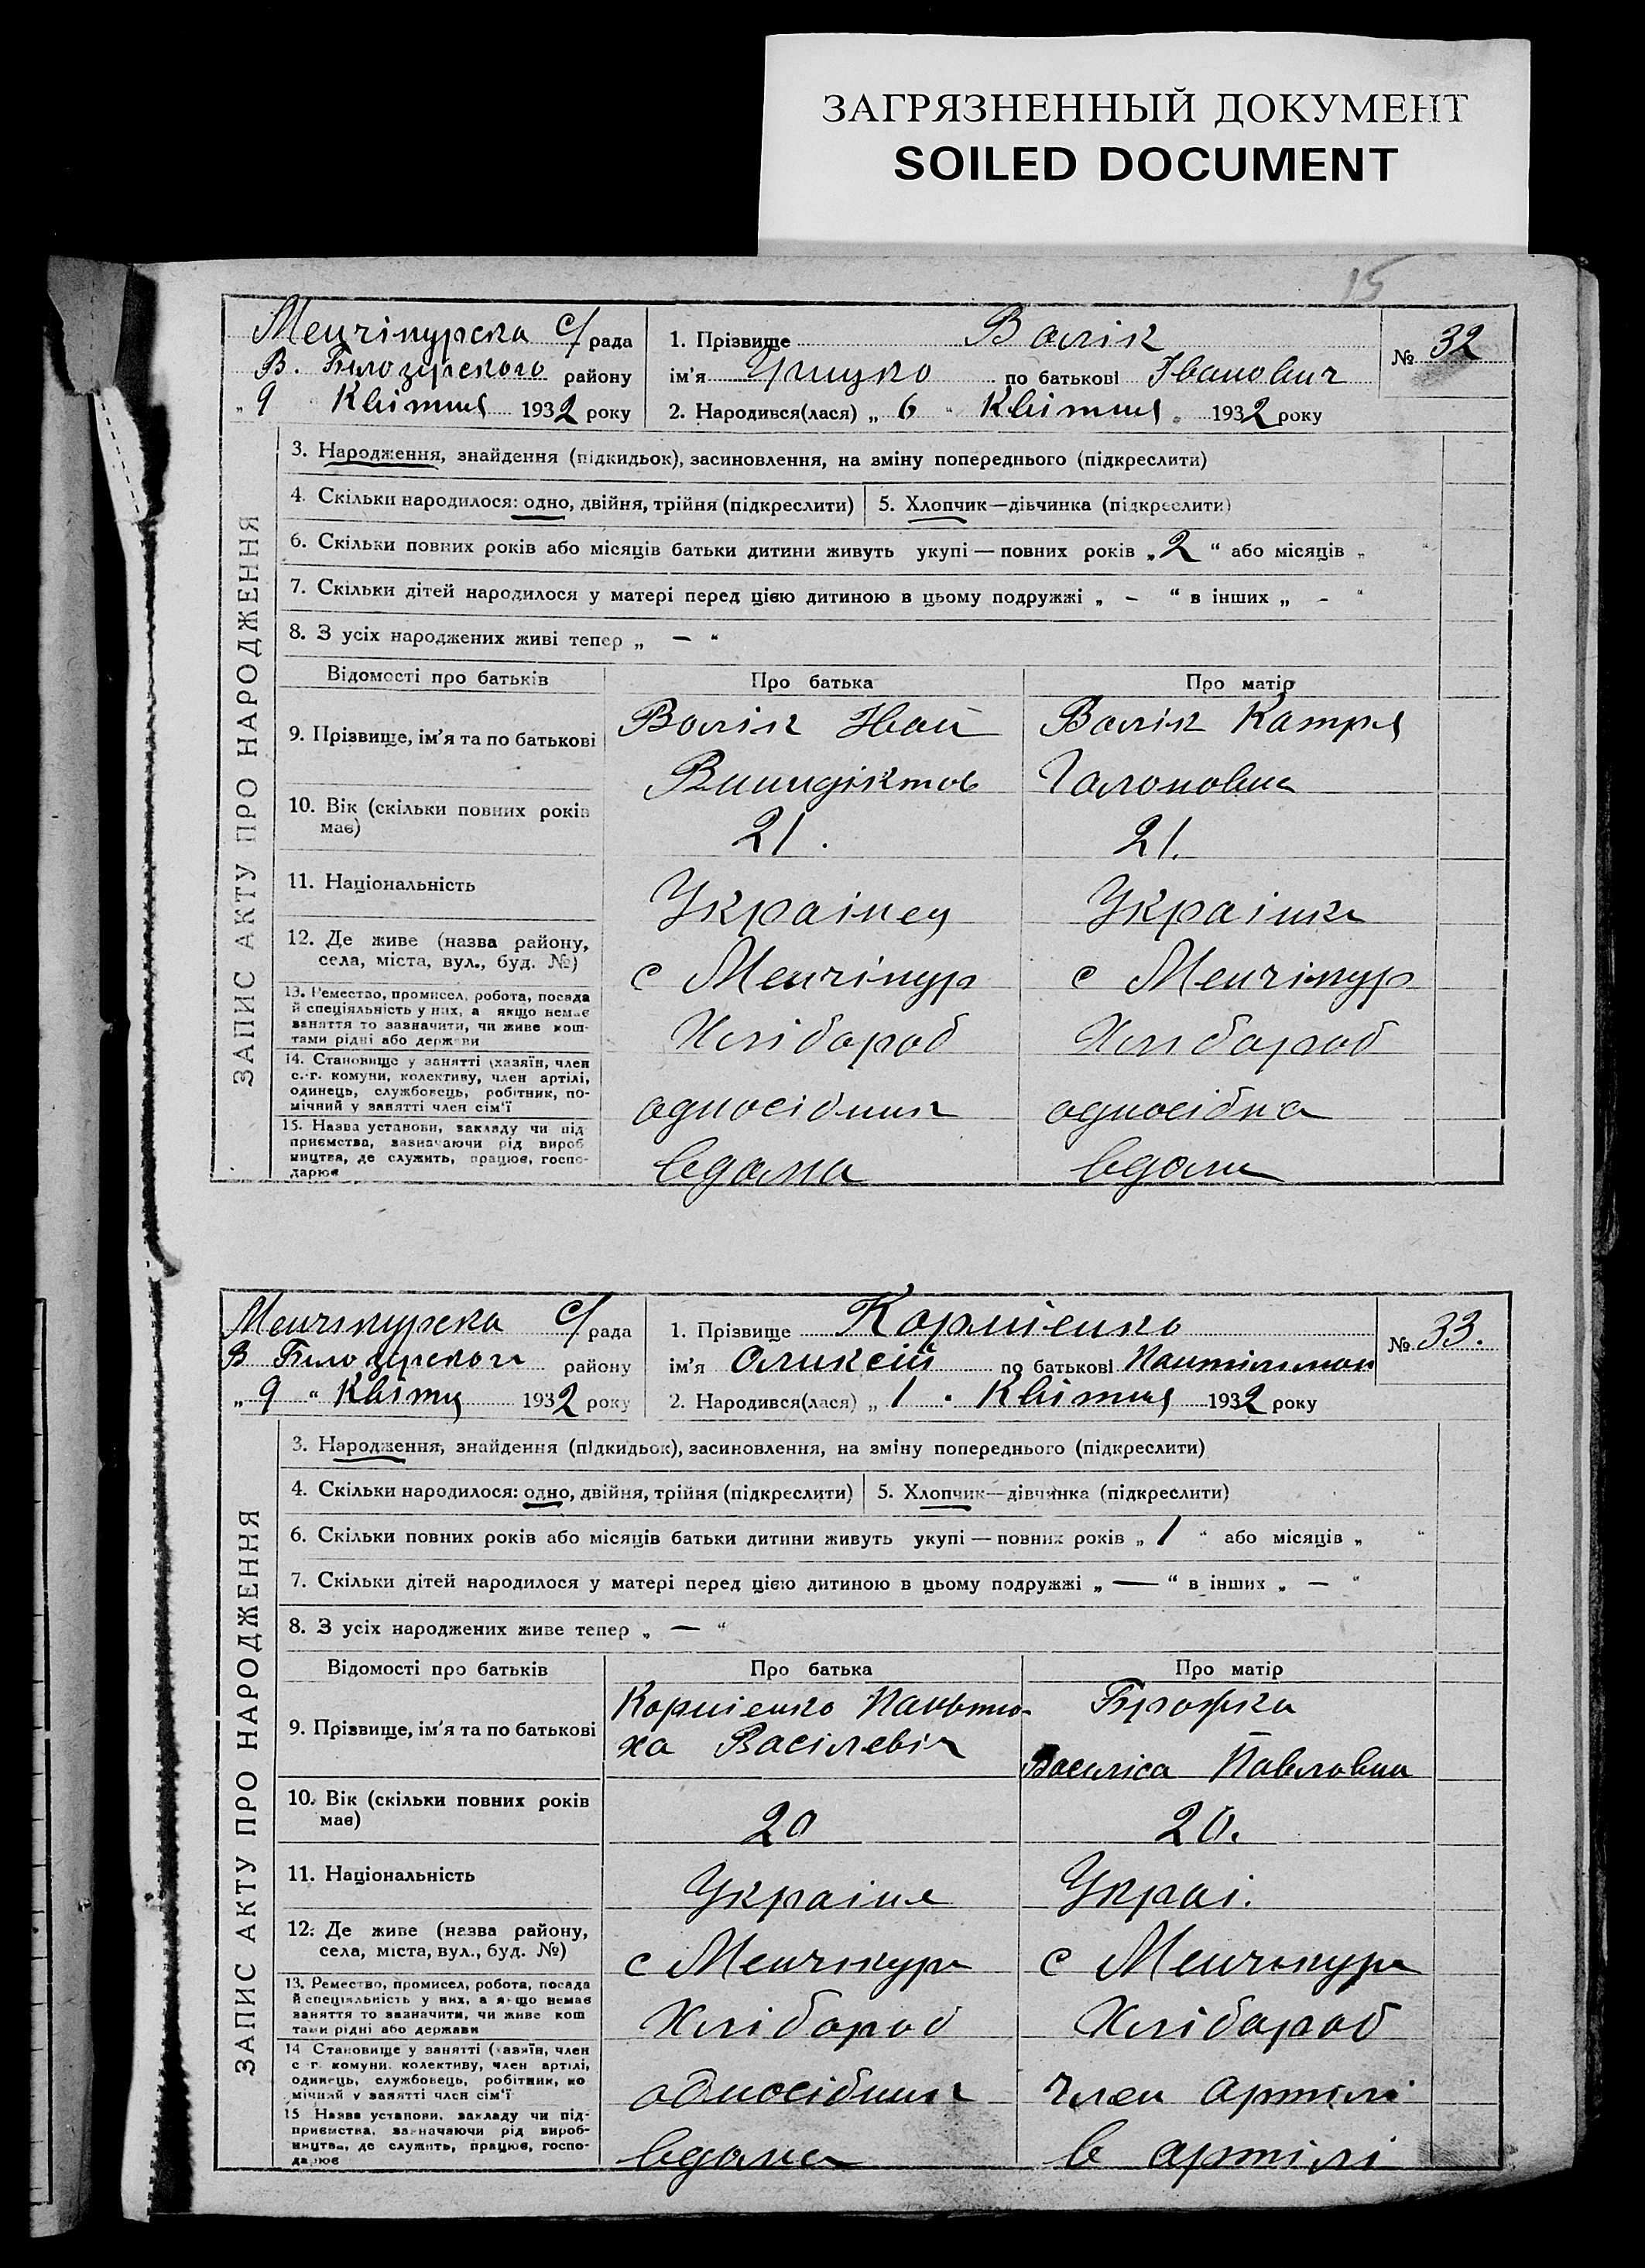 ЗАГРЯЗНЕННЫЙ ДОКУМЕНТ
SOILED DOCUMENT
15
Менчікурска с/рада
В. Білозерского району
„9" Квітня 1932 року
1. Прізвище Волік
ім'я Грицко по батькові Іванович
2. Народився(лася) „6" Квітня 1932 року
№ 32
ЗАПИС АКТУ ПРО НАРОДЖЕННЯ
3. Народження, знайдення (підкидьок), засиновлення, на зміну попереднього (підкреслити)
4. Скільки народилося: одно, двійня, трійня (підкреслити) 5. Хлопчик—дівчинка (підкреслити)
6. Скільки повних років або місяців батьки дитини живуть укупі — повних років „2" або місяців „ "
7. Скільки дітей народилося у матері перед цією дитиною в цьому подружжі „ - " в інших „ - "
8. З усіх народжених живі тепер „ — "
Відомості про батьків Про батька Про матір
9. Прізвище, ім'я та по батькові
Волік Іван Волік Катря
10. Вік (скільки повних років має)
21. 21.
11. Національність
Українец Українка
12. Де живе (назва району, села, міста, вул., буд. №)
с Менчікур с Менчікур
13. Ремество, промисел, робота, посада й спеціяльність у них, а якщо немає заняття то зазначити, чи живе коштами рідні або держави
Хлібороб Хлібороб
14. Становище у занятті (хазяїн, член с.-г. комуни, колективу, член артілі, одинець, службовець, робітник, помічний у занятті член сім'ї
односібник односібна
15. Назва установи, закладу чи підприємства, зазначаючи рід виробництва, де служить, працює, господарює
вдома вдома
Менчікурска с/рада
В Білозерского району
„9" Квітня 1932 року
1. Прізвище Корнієнко
ім'я Оликсій по батькові
2. Народився(лася) „1" Квітня 1932 року
№ 33.
ЗАПИС АКТУ ПРО НАРОДЖЕННЯ
3. Народження, знайдення (підкидьок), засиновлення, на зміну попереднього (підкреслити)
4. Скільки народилося: одно, двійня, трійня (підкреслити) 5. Хлопчик—дівчинка (підкреслити)
6. Скільки повних років або місяців батьки дитини живуть укупі — повних років „1" або місяців „ "
7. Скільки дітей народилося у матері перед цією дитиною в цьому подружжі „—" в інших „ — "
8. З усіх народжених живе тепер „ — "
Відомості про батьків Про батька Про матір
9. Прізвище, ім'я та по батькові
Корнієнко
Васілевіч Василіса Павловна
10. Вік (скільки повних років має)
20 20.
11. Національність
Україне Украі.
12. Де живе (назва району, села, міста, вул., буд. №)
с Менчикури с Менчикури
13. Ремество, промисел, робота, посада й спеціяльність у них, а якщо немає заняття то зазначити, чи живе коштами рідні або держави
Хлібороб Хлібороб
14 Становище у занятті (хазяїн, член с г. комуни. колективу, член артілі, одинець, службовець, робітник, помічний у занятті член сім'ї
односібник член артілі
15 Назва установи, закладу чи підприємства, зазначаючи рід виробництва, де служить, працює, господарює
вдома в артілі